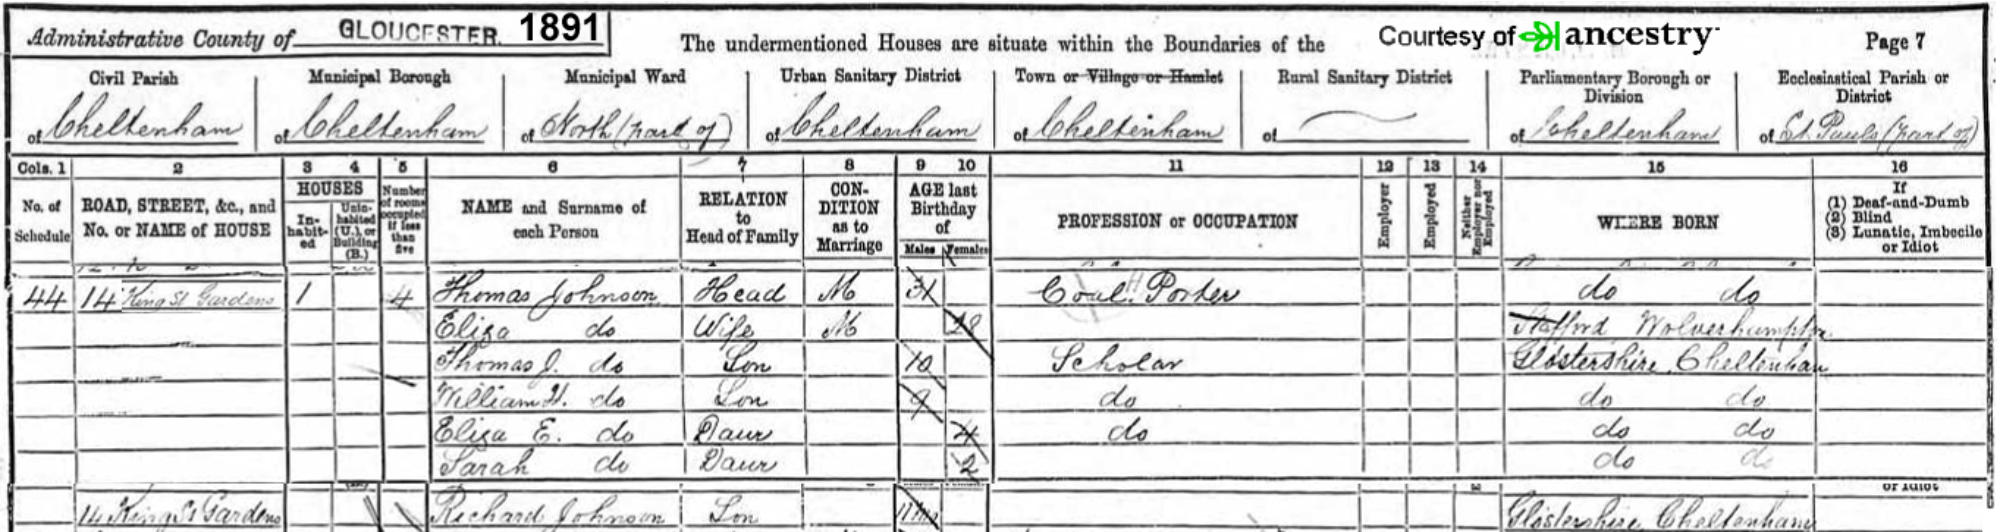 Administrative County of GLOUCESTER. 1891 The undermentioned Houses are situate within the Boundaries of the Courtesy of ancestry Page 7
Civil Parish Municipal Borough Municipal Ward Urban Sanitary District Town or Village or Hamlet Rural Sanitary District Parliamentary Borough or Division Ecclesiastical Parish or District
of Cheltenham of Cheltenham of North (part of) of Cheltenham of Cheltenham of of Cheltenham of St. Pauls (part of)
Cols. 1 2 3 4 5 6 7 8 9 10 11 12 13 14 15 16
No. of Schedule ROAD, STREET, &c., and No. or NAME of HOUSE HOUSES Inhabit-ed Unin-habited (U.), or Building (B.) Number of rooms occupied if less than five NAME and Surname of each Person RELATION to Head of Family CON-DITION as to Marriage AGE last Birthday of Males Females PROFESSION or OCCUPATION Employer Employed Neither Employer nor Employed WHERE BORN If (1) Deaf-and-Dumb (2) Blind (3) Lunatic, Imbecile or Idiot
44 14 King St Gardens 1 4 Thomas Johnson Head M 31 Coal Porter do do
Eliza do Wife M Stafford Wolverhampton
Thomas J. do Son 10 Scholar Glostershire Cheltenham
William H. do Son 9 do do do
Eliza E. do Daur 4 do do do
Sarah do Daur 2 do do
or Idiot
14 King St Gardens Richard Johnson Son Glostershire Cheltenham